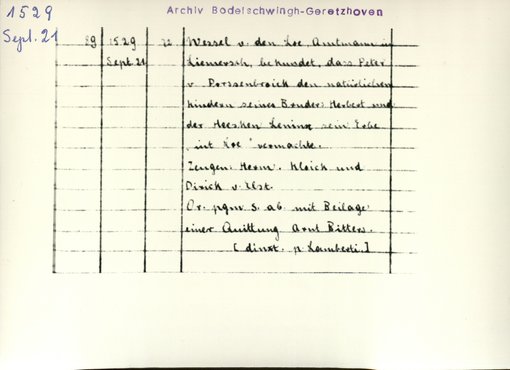 1529
Sept. 21
Archiv Bodelschwingh-Geretzhoven
89 1529 72 Wessel v. den Loe, Amtmann in
Sept. 21 Liemersch, bekundet, dass Peter
v. Forssenbroich den natürlichen
Kindern seines Bruders Herbert und
der Meesken Leninx sein Erbe
"int Loe" vermachte.
Zeugen: Herm. Kloick und
Dirick v. Elst.
Or. pgm S. ab. mit Beilage
einer Quittung Arnt Bitters.
[dinxt. p. Lamberti.]